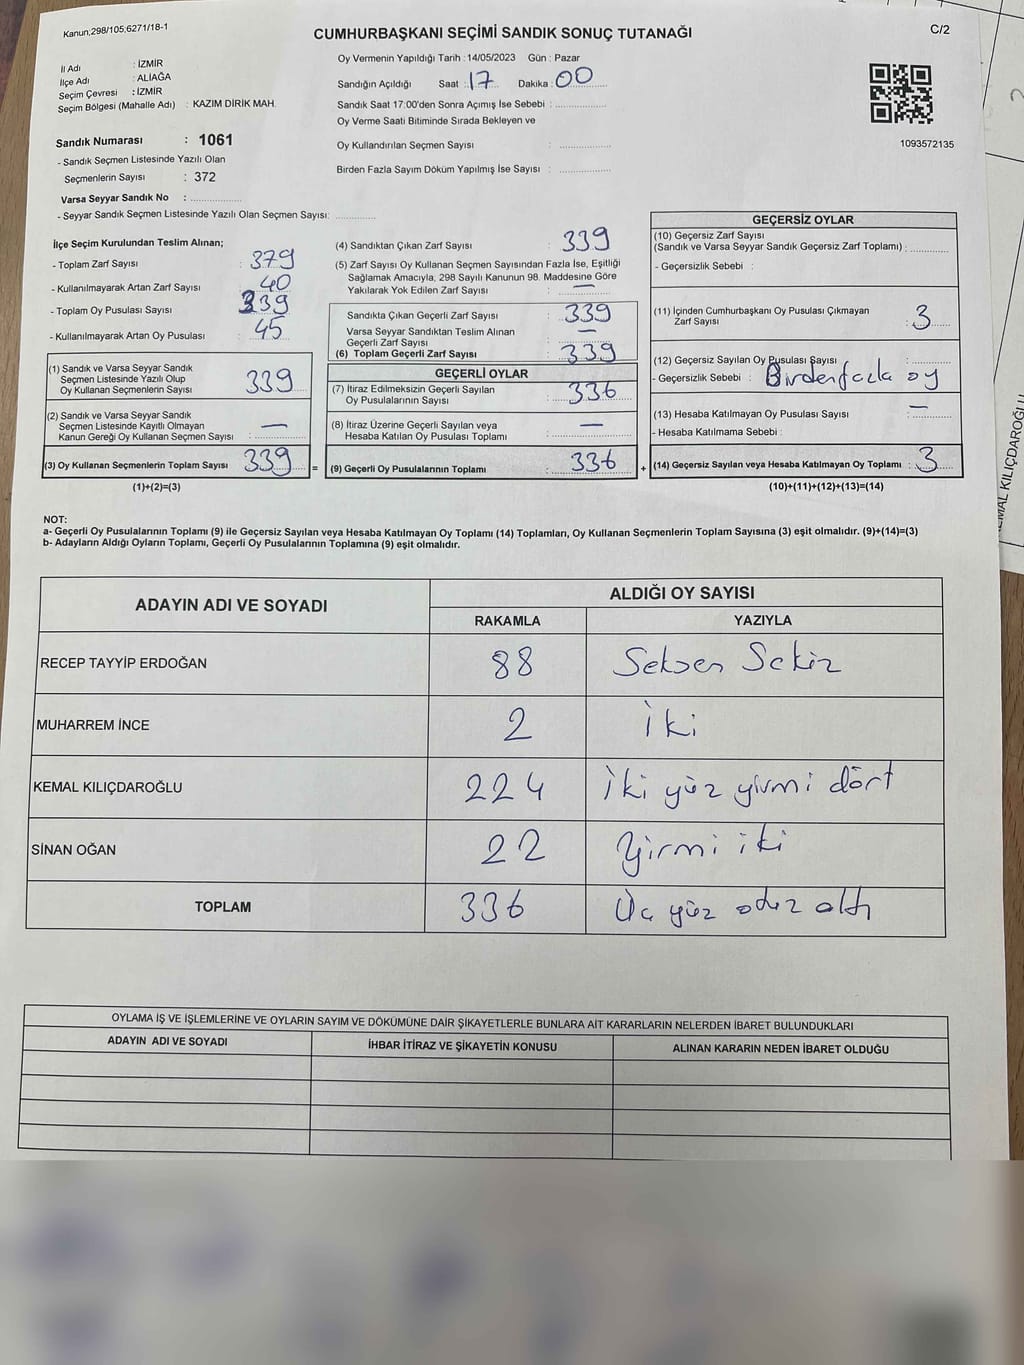 Kanun,298/105,6271/18-1
CUMHURBAŞKANI SEÇİMİ SANDIK SONUÇ TUTANAĞI
C/2
İl Adı : İZMİR
İlçe Adı : ALİAĞA
Seçim Çevresi : İZMİR
Seçim Bölgesi (Mahalle Adı) : KAZIM DİRİK MAH.
Sandık Numarası : 1061
- Sandık Seçmen Listesinde Yazılı Olan
Seçmenlerin Sayısı : 372
Varsa Seyyar Sandık No :
- Seyyar Sandık Seçmen Listesinde Yazılı Olan Seçmen Sayısı:
Oy Vermenin Yapıldığı Tarih : 14/05/2023 Gün : Pazar
Sandığın Açıldığı Saat : 17 Dakika : 00
Sandık Saat 17:00'den Sonra Açımış İse Sebebi :
Oy Verme Saati Bitiminde Sırada Bekleyen ve
Oy Kullandırılan Seçmen Sayısı :
Birden Fazla Sayım Döküm Yapılmış İse Sayısı :
1093572135
İlçe Seçim Kurulundan Teslim Alınan;
- Toplam Zarf Sayısı : 379
- Kullanılmayarak Artan Zarf Sayısı : 40
- Toplam Oy Pusulası Sayısı : 339
- Kullanılmayarak Artan Oy Pusulası : 45
(1) Sandık ve Varsa Seyyar Sandık
Seçmen Listesinde Yazılı Olup
Oy Kullanan Seçmenlerin Sayısı : 339
(2) Sandık ve Varsa Seyyar Sandık
Seçmen Listesinde Kayıtlı Olmayan
Kanun Gereği Oy Kullanan Seçmen Sayısı : —
(3) Oy Kullanan Seçmenlerin Toplam Sayısı : 339 =
(1)+(2)=(3)
(4) Sandıktan Çıkan Zarf Sayısı : 339
(5) Zarf Sayısı Oy Kullanan Seçmen Sayısından Fazla İse, Eşitliği
Sağlamak Amacıyla, 298 Sayılı Kanunun 98. Maddesine Göre
Yakılarak Yok Edilen Zarf Sayısı : —
Sandıkta Çıkan Geçerli Zarf Sayısı : 339
Varsa Seyyar Sandıktan Teslim Alınan
Geçerli Zarf Sayısı : —
(6) Toplam Geçerli Zarf Sayısı : 339
GEÇERLİ OYLAR
(7) İtiraz Edilmeksizin Geçerli Sayılan
Oy Pusulalarının Sayısı : 336
(8) İtiraz Üzerine Geçerli Sayılan veya
Hesaba Katılan Oy Pusulası Toplamı : —
(9) Geçerli Oy Pusulalarının Toplamı : 336 +
GEÇERSİZ OYLAR
(10) Geçersiz Zarf Sayısı
(Sandık ve Varsa Seyyar Sandık Geçersiz Zarf Toplamı) :
- Geçersizlik Sebebi :
(11) İçinden Cumhurbaşkanı Oy Pusulası Çıkmayan
Zarf Sayısı : 3
(12) Geçersiz Sayılan Oy Pusulası Sayısı :
- Geçersizlik Sebebi : Birden fazla oy
(13) Hesaba Katılmayan Oy Pusulası Sayısı : —
- Hesaba Katılmama Sebebi :
(14) Geçersiz Sayılan veya Hesaba Katılmayan Oy Toplamı : 3
(10)+(11)+(12)+(13)=(14)
NOT:
a- Geçerli Oy Pusulalarının Toplamı (9) ile Geçersiz Sayılan veya Hesaba Katılmayan Oy Toplamı (14) Toplamları, Oy Kullanan Seçmenlerin Toplam Sayısına (3) eşit olmalıdır. (9)+(14)=(3)
b- Adayların Aldığı Oyların Toplamı, Geçerli Oy Pusulalarının Toplamına (9) eşit olmalıdır.
ADAYIN ADI VE SOYADI ALDIĞI OY SAYISI
RAKAMLA YAZIYLA
RECEP TAYYİP ERDOĞAN 88 Seksen Sekiz
MUHARREM İNCE 2 İki
KEMAL KILIÇDAROĞLU 224 İki yüz yirmi dört
SİNAN OĞAN 22 Yirmi iki
TOPLAM 336 Üç yüz otuz altı
OYLAMA İŞ VE İŞLEMLERİNE VE OYLARIN SAYIM VE DÖKÜMÜNE DAİR ŞİKAYETLERLE BUNLARA AİT KARARLARIN NELERDEN İBARET BULUNDUKLARI
ADAYIN ADI VE SOYADI İHBAR İTİRAZ VE ŞİKAYETİN KONUSU ALINAN KARARIN NEDEN İBARET OLDUĞU
KEMAL KILIÇDAROĞLU